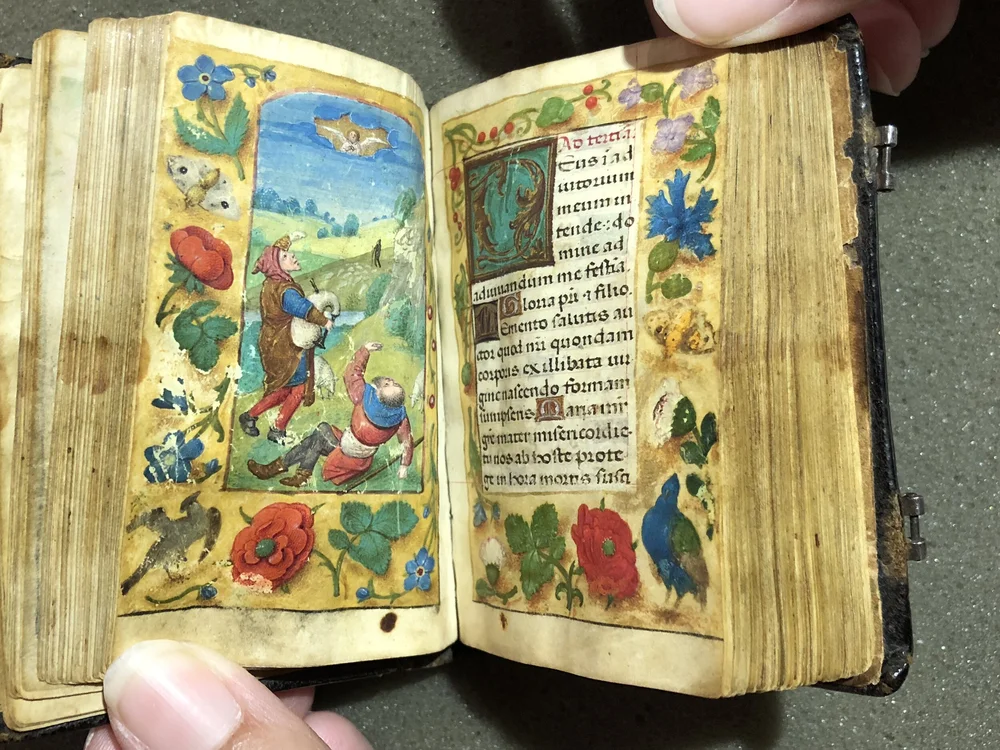 Ad tertia.
Deus i ad
iutorium
meum in
tende: do
mine ad
adiuuandum me festia.
Gloria pri ⁊ filio.
Memento salutis au
ctor quod nri quondam
corporis ex illibata uir
gine nascendo formam
sumpseris. Maria mr
gre mater misericordie
tu nos ab hoste prote
ge in hora mortis susci